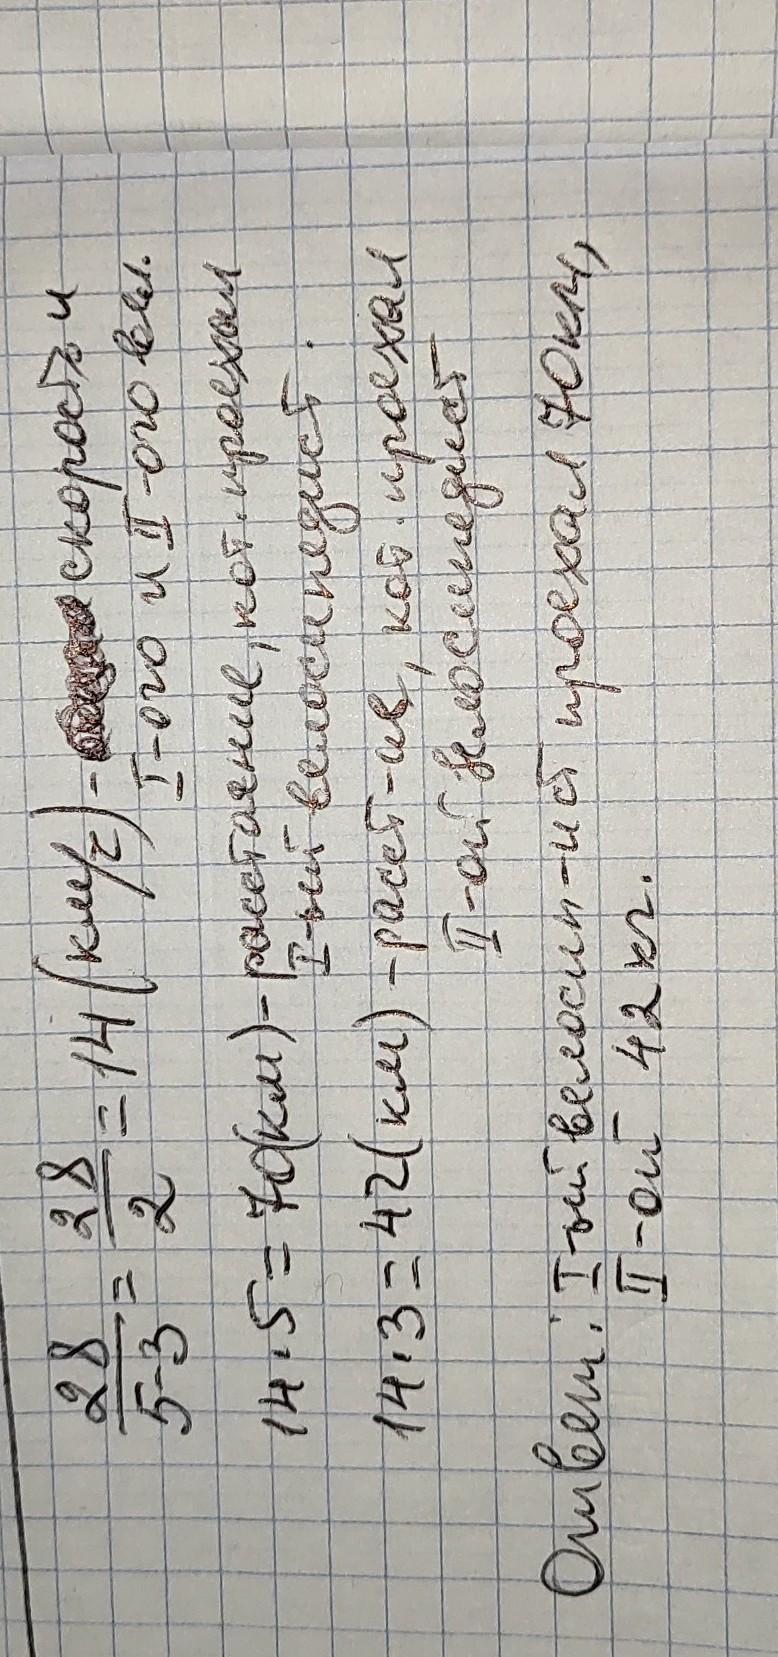 28/5-3 = 28/2 = 14 (км/ч) - скорость и
I-ого и II-ого вел.
14·5 = 70(км) - расстояние, кот. проехал
I-ый велосипедист.
14·3 = 42(км) - расст-ие, кот. проехал
II-ой велосипедист
Ответ: I-ый велосип-ист проехал 70км,
II-ой 42кг.